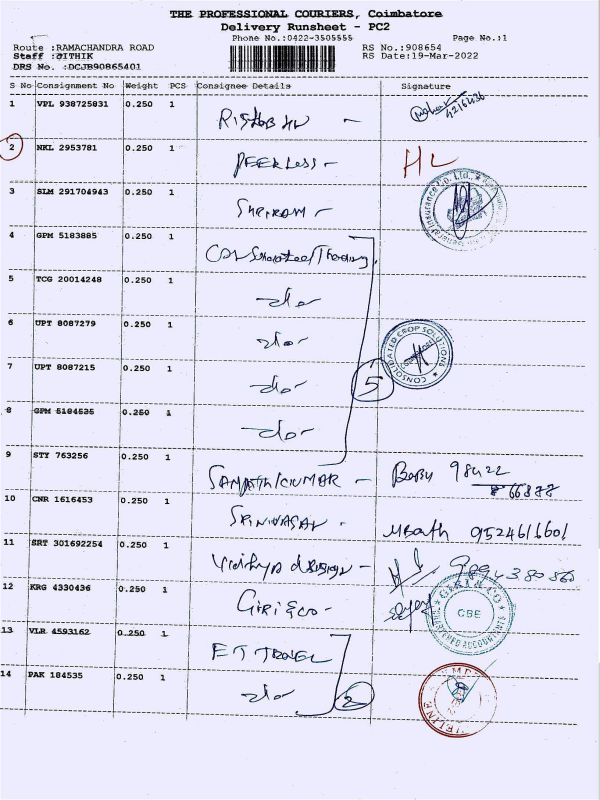 THE PROFESSIONAL COURIERS, Coimbatore
Delivery Runsheet - PC2
Phone No.:0422-3505555
Page No.:1
Route :RAMACHANDRA ROAD
RS No.:908654
Staff :JITHIK
RS Date:19-Mar-2022
DRS No. :DCJB90865401
S No Consignment No Weight PCS Consignee Details Signature
1 VPL 938725831 0.250 1
2 NKL 2953781 0.250 1 PEERLESS - HL
3 SLM 291704943 0.250 1 SHRIRAM -
4 GPM 5183885 0.250 1
5 TCG 20014248 0.250 1 -do-
6 UPT 8087279 0.250 1 -do-
CONSOLIDATED CROP SOLUTIONS
7 UPT 8087215 0.250 1 -do- 5
8 GPM 5184535 0.250 1 -do-
9 STY 763256 0.250 1 SAMPATHKUMAR - Babu 98422
66888
10 CNR 1616453 0.250 1 SRINIVASAN - 9524616601
11 SRT 301692254 0.250 1 Vidhya design -
12 KRG 4330436 0.250 1 GIRI & CO -
GIRI & CO
CBE
CHARTERED ACCOUNTANTS
13 VLR 4593162 0.250 1 ET TRAVEL
14 PAK 184535 0.250 1 -do- 2